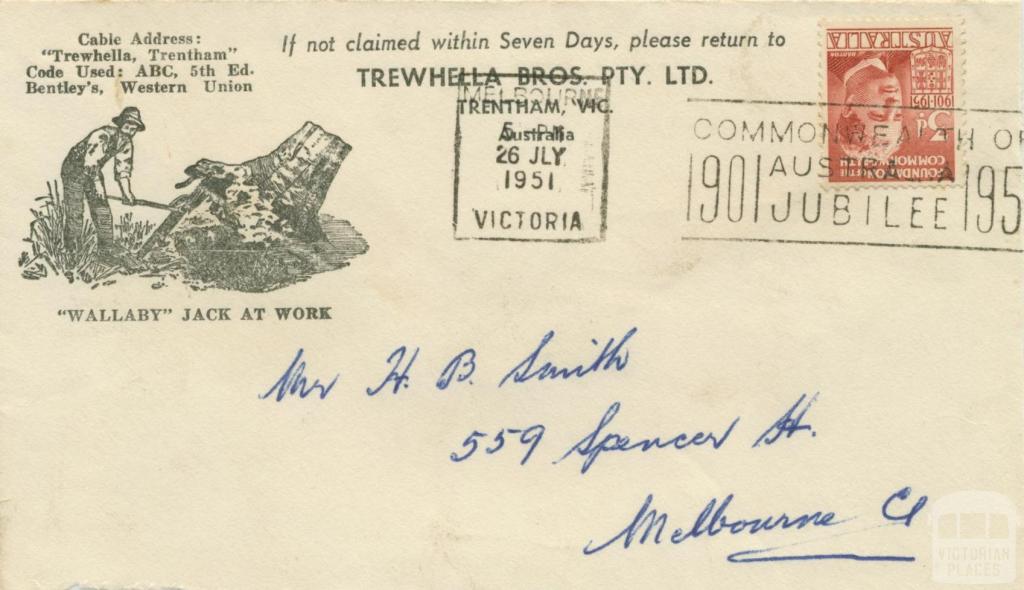 Cable Address:
"Trewhella, Trentham"
Code Used: ABC, 5th Ed.
Bentley's, Western Union
"WALLABY" JACK AT WORK
If not claimed within Seven Days, please return to
TREWHELLA BROS. PTY. LTD.
TRENTHAM, VIC.
Australia
MELBOURNE
5 - PM
26 JLY
1951
VICTORIA
COMMONWEALTH OF
AUSTRALIA
1901 JUBILEE 195
AUSTRALIA
BARTON
1901-1951
3D
FOUNDATION OF THE
COMMONWEALTH
Mr H. B. Smith
559 Spencer St.
Melbourne C1
VICTORIAN
PLACES